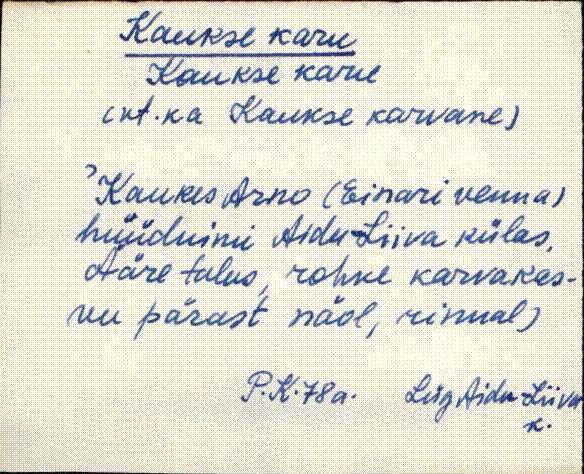 Kaukse karu
Kaukse karu
(vt. ka Kaukse karvane)
'Kaukes Arno (Einari venna)
hüüdnimi Aidu-Liiva külas,
Ääre talus, rohke karvakas-
vu pärast näol, rinnal)
P.K. 78 a. Lüg Aidu-Liiva
k.